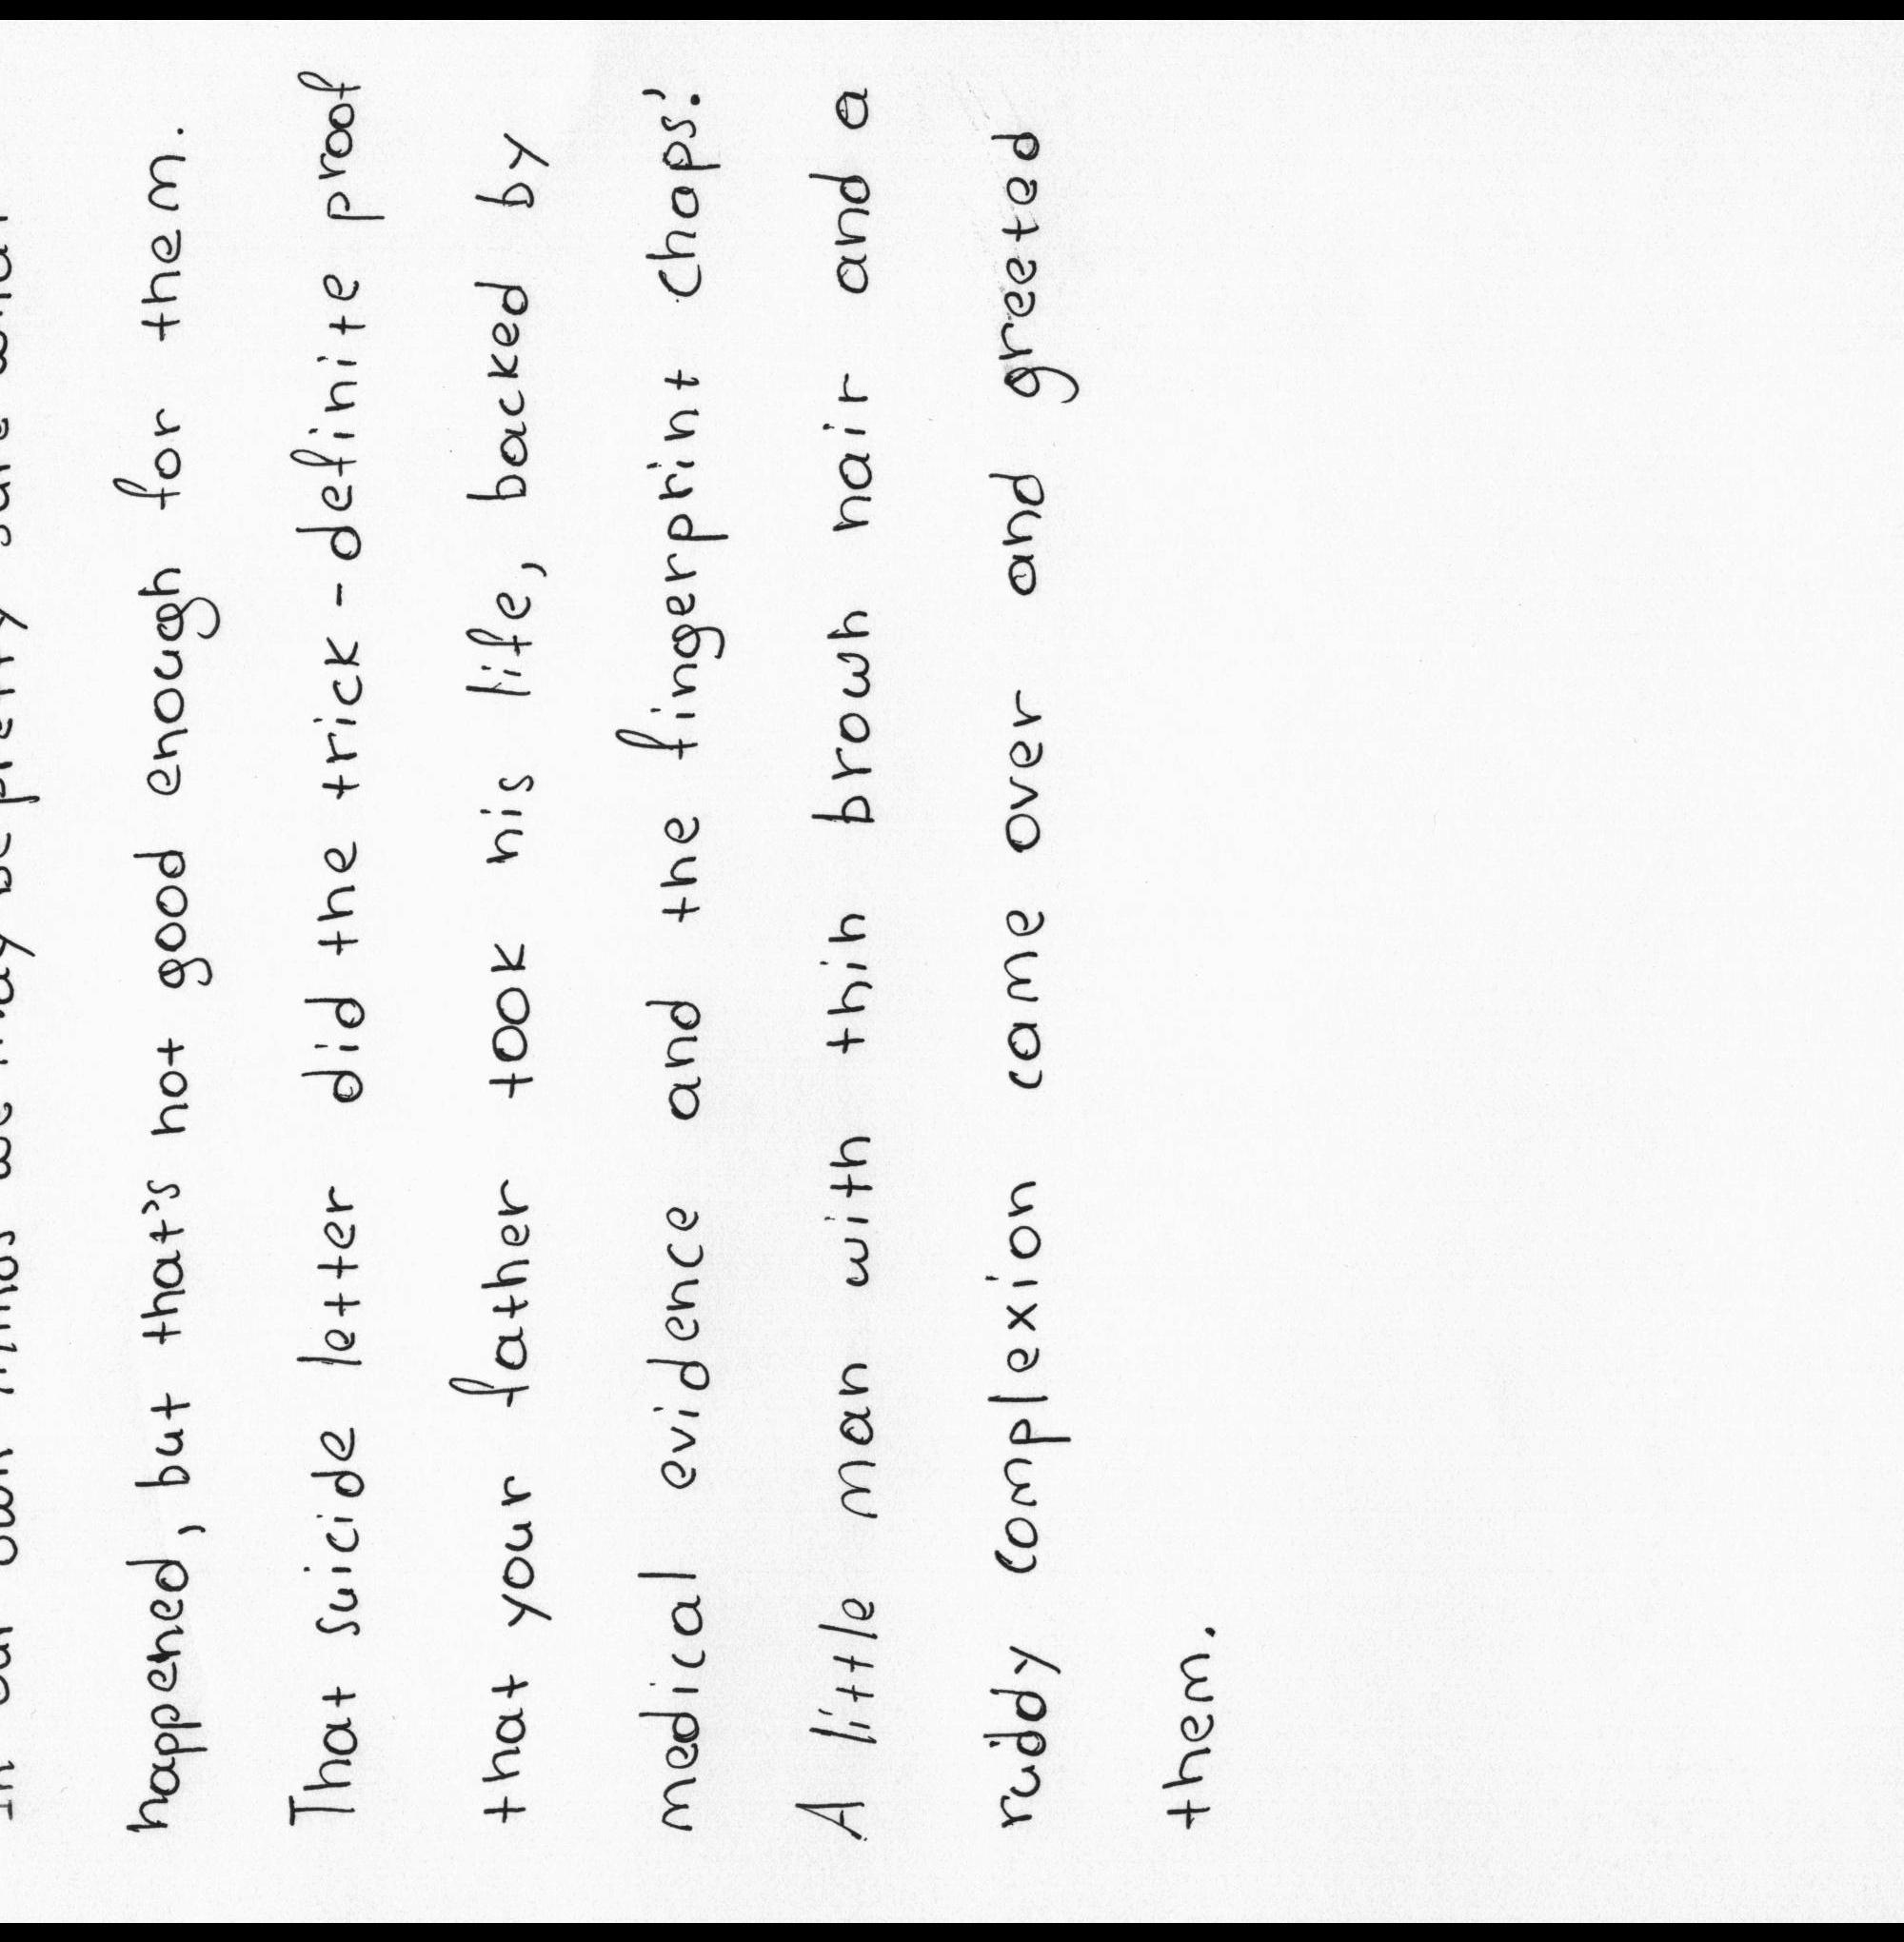 In our own minds we may be pretty sure what
happened, but that's not good enough for them.
That suicide letter did the trick - definite proof
that your father took his life, backed by
medical evidence and the fingerprint chops.'
A little man with thin brown hair and a
ruddy complexion came over and greeted
them.